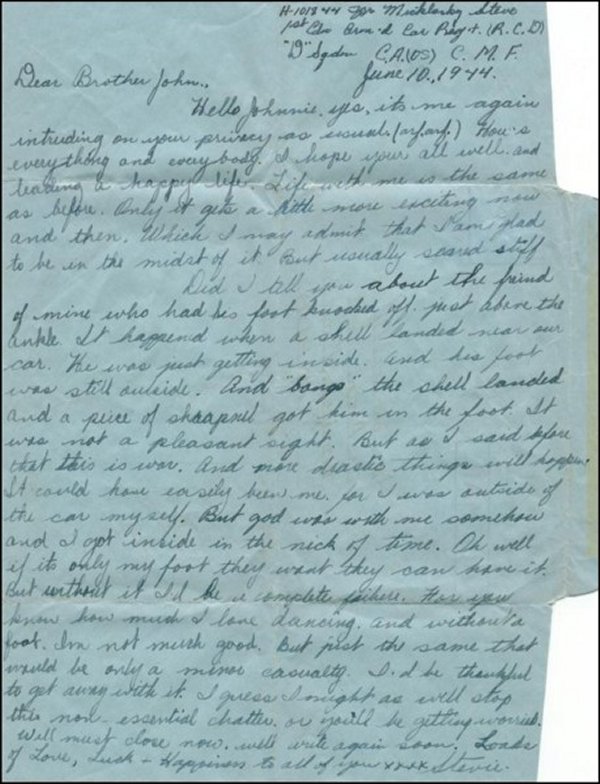 H-101844 Tpr Micklosky Steve
1st Cdn Arm'd Car Reg't. (R.C.D)
"D" Sqdn C.A.(OS) C.M.F.
June 10, 1944.
Dear Brother John.,
Hello Johnnie, yes, its me again
intruding on your privacy as usual. (arf. arf.) How's
everything and everybody. I hope your all well and
leading a happy life. Life with me is the same
as before. Only it gets a little more exciting now
and then. Which I may admit that I am glad
to be in the midst of it. But usually scared stiff
Did I tell you about the friend
of mine who had his foot knocked off. just above the
ankle. It happend when a shell landed near our
car. He was just getting inside. And his foot
was still outside. And "bango" the shell landed
and a piece of shrapnel got him in the foot. It
was not a pleasant sight. But as I said before
that this is war. And more drastic things will happen.
It could have easily been me. for I was outside of
the car myself. But god was with me somehow
and I got inside in the nick of time. Oh well
if its only my foot they want they can have it.
But without it I'd be a complete failure. For you
know how much I love dancing. and without a
foot. Im not much good. But just the same that
would be only a minor casualty. I'd be thankful
to get away with it. I guess I might as well stop
this non-essential chatter. or you'll be getting worried.
Well must close now. will write again soon. Loads
of Love, Luck + Happiness to all of you xxxx Stevie.